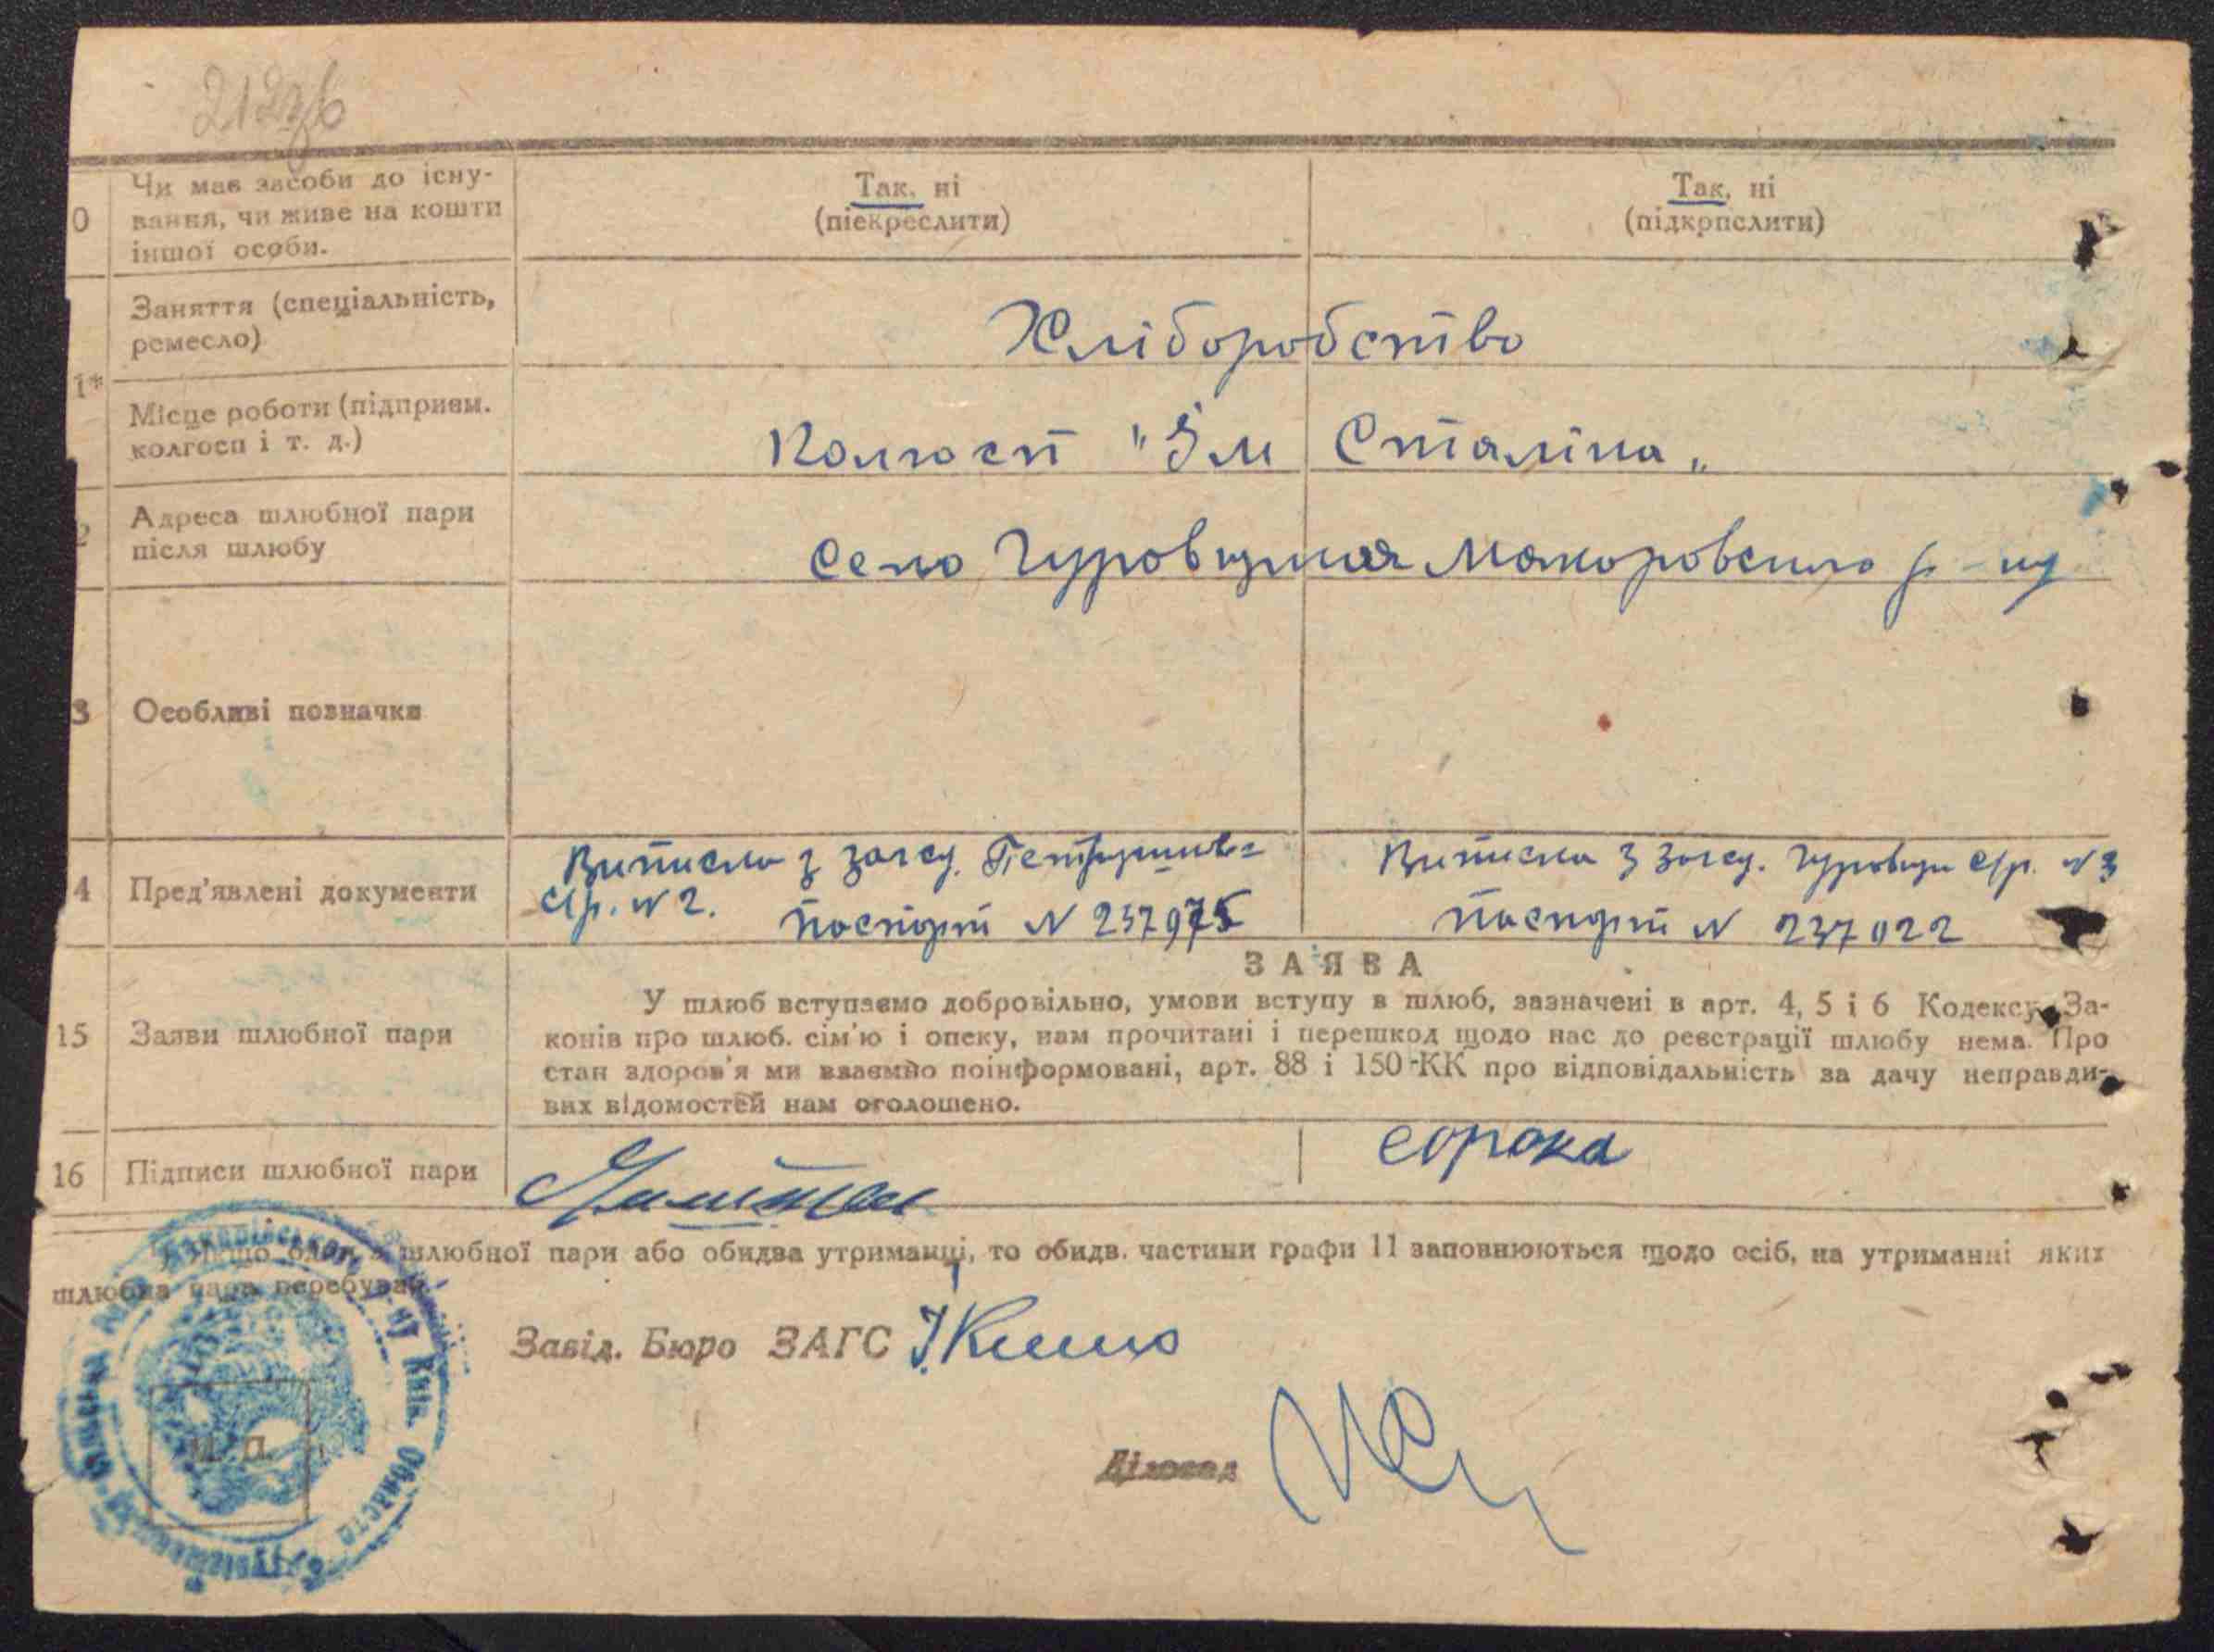 0 Чи має засоби до існу-
вання, чи живе на кошти
іншої особи.
Так, ні
(піекреслити)
Так, ні
(підкрпслити)
Заняття (спеціальність,
ремесло)
Хліборобство
1*
Місце роботи (підприєм.
колгосп і т. д.)
Колгосп "Ім Сталіна"
2 Адреса шлюбної пари
після шлюбу
село Макоровського р-ну
3 Особливі позначки
4 Пред'явлені документи
Виписка з загсу.
с/р. N 2. паспорт N 257975
Виписка з загсу. с/р. N 3
паспорт N 237022
ЗАЯВА
15 Заяви шлюбної пари
У шлюб вступаємо добровільно, умови вступу в шлюб, зазначені в арт. 4, 5 і 6 Кодексу За-
конів про шлюб. сім'ю і опеку, нам прочитані і перешкод щодо нас до реєстрації шлюбу нема. Про
стан здоров'я ми взаємно поінформовані, арт. 88 і 150-КК про відповідальність за дачу неправди-
вих відомостей нам оголошено.
16 Підписи шлюбної пари
сорока
шлюбної пари або обидва утриманці, то обидв. частини графи 11 заповнюються щодо осіб, на утриманні яких
шлюбна пара перебуває.
Завід. Бюро ЗАГС
Діловод
М. П.